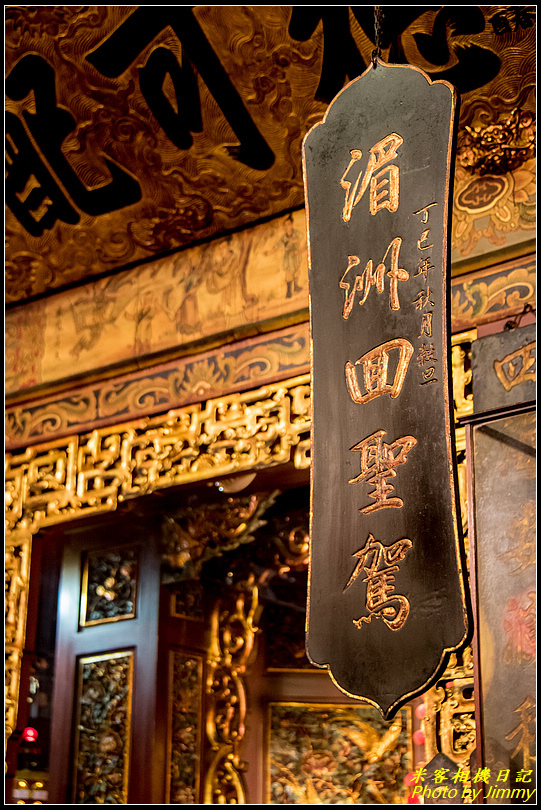 湄洲回聖駕
丁巳年秋月穀旦
可配
米客相機日記
Photo by Jimmy